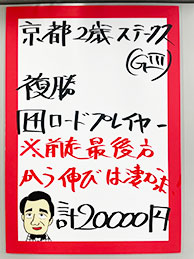 京都2歳ステークス
(GⅢ)
複勝
11ロードプレイヤー
※前走最後方
から伸びは凄かった
計20000円